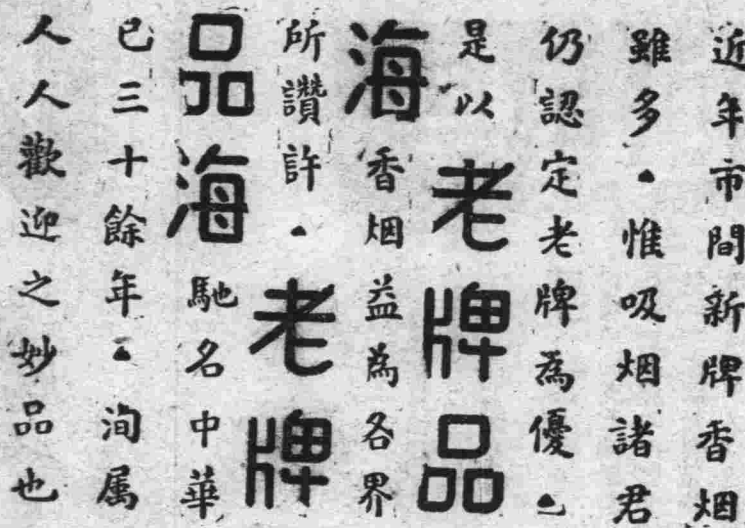 近年市間新牌香烟
雖多▲惟吸烟諸君
仍認定老牌為優▲
是以老牌品
海香烟益為各界
所讚許▲老牌
品海馳名中華
已三十餘年▲洵属
人人歡迎之妙品也